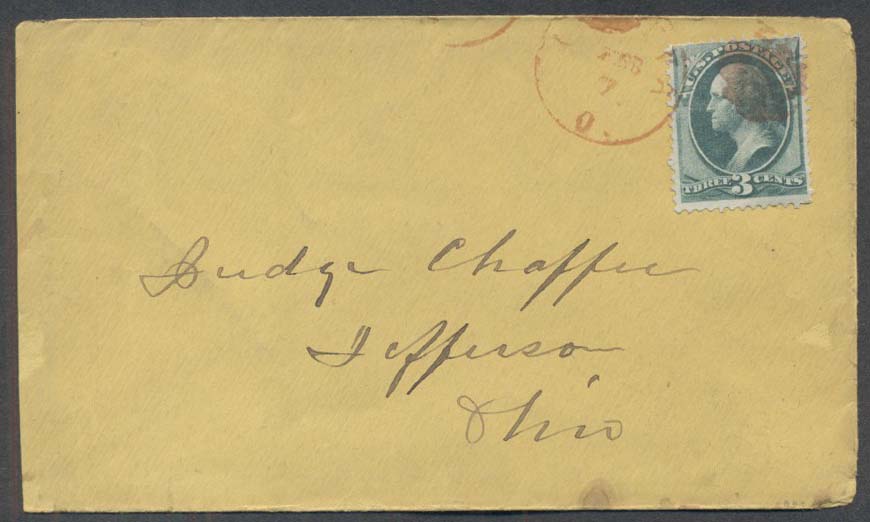 FEB
7
O.
U.S. POSTAGE
THREE 3 CENTS
Judge Chaffee
Jefferson
Ohio